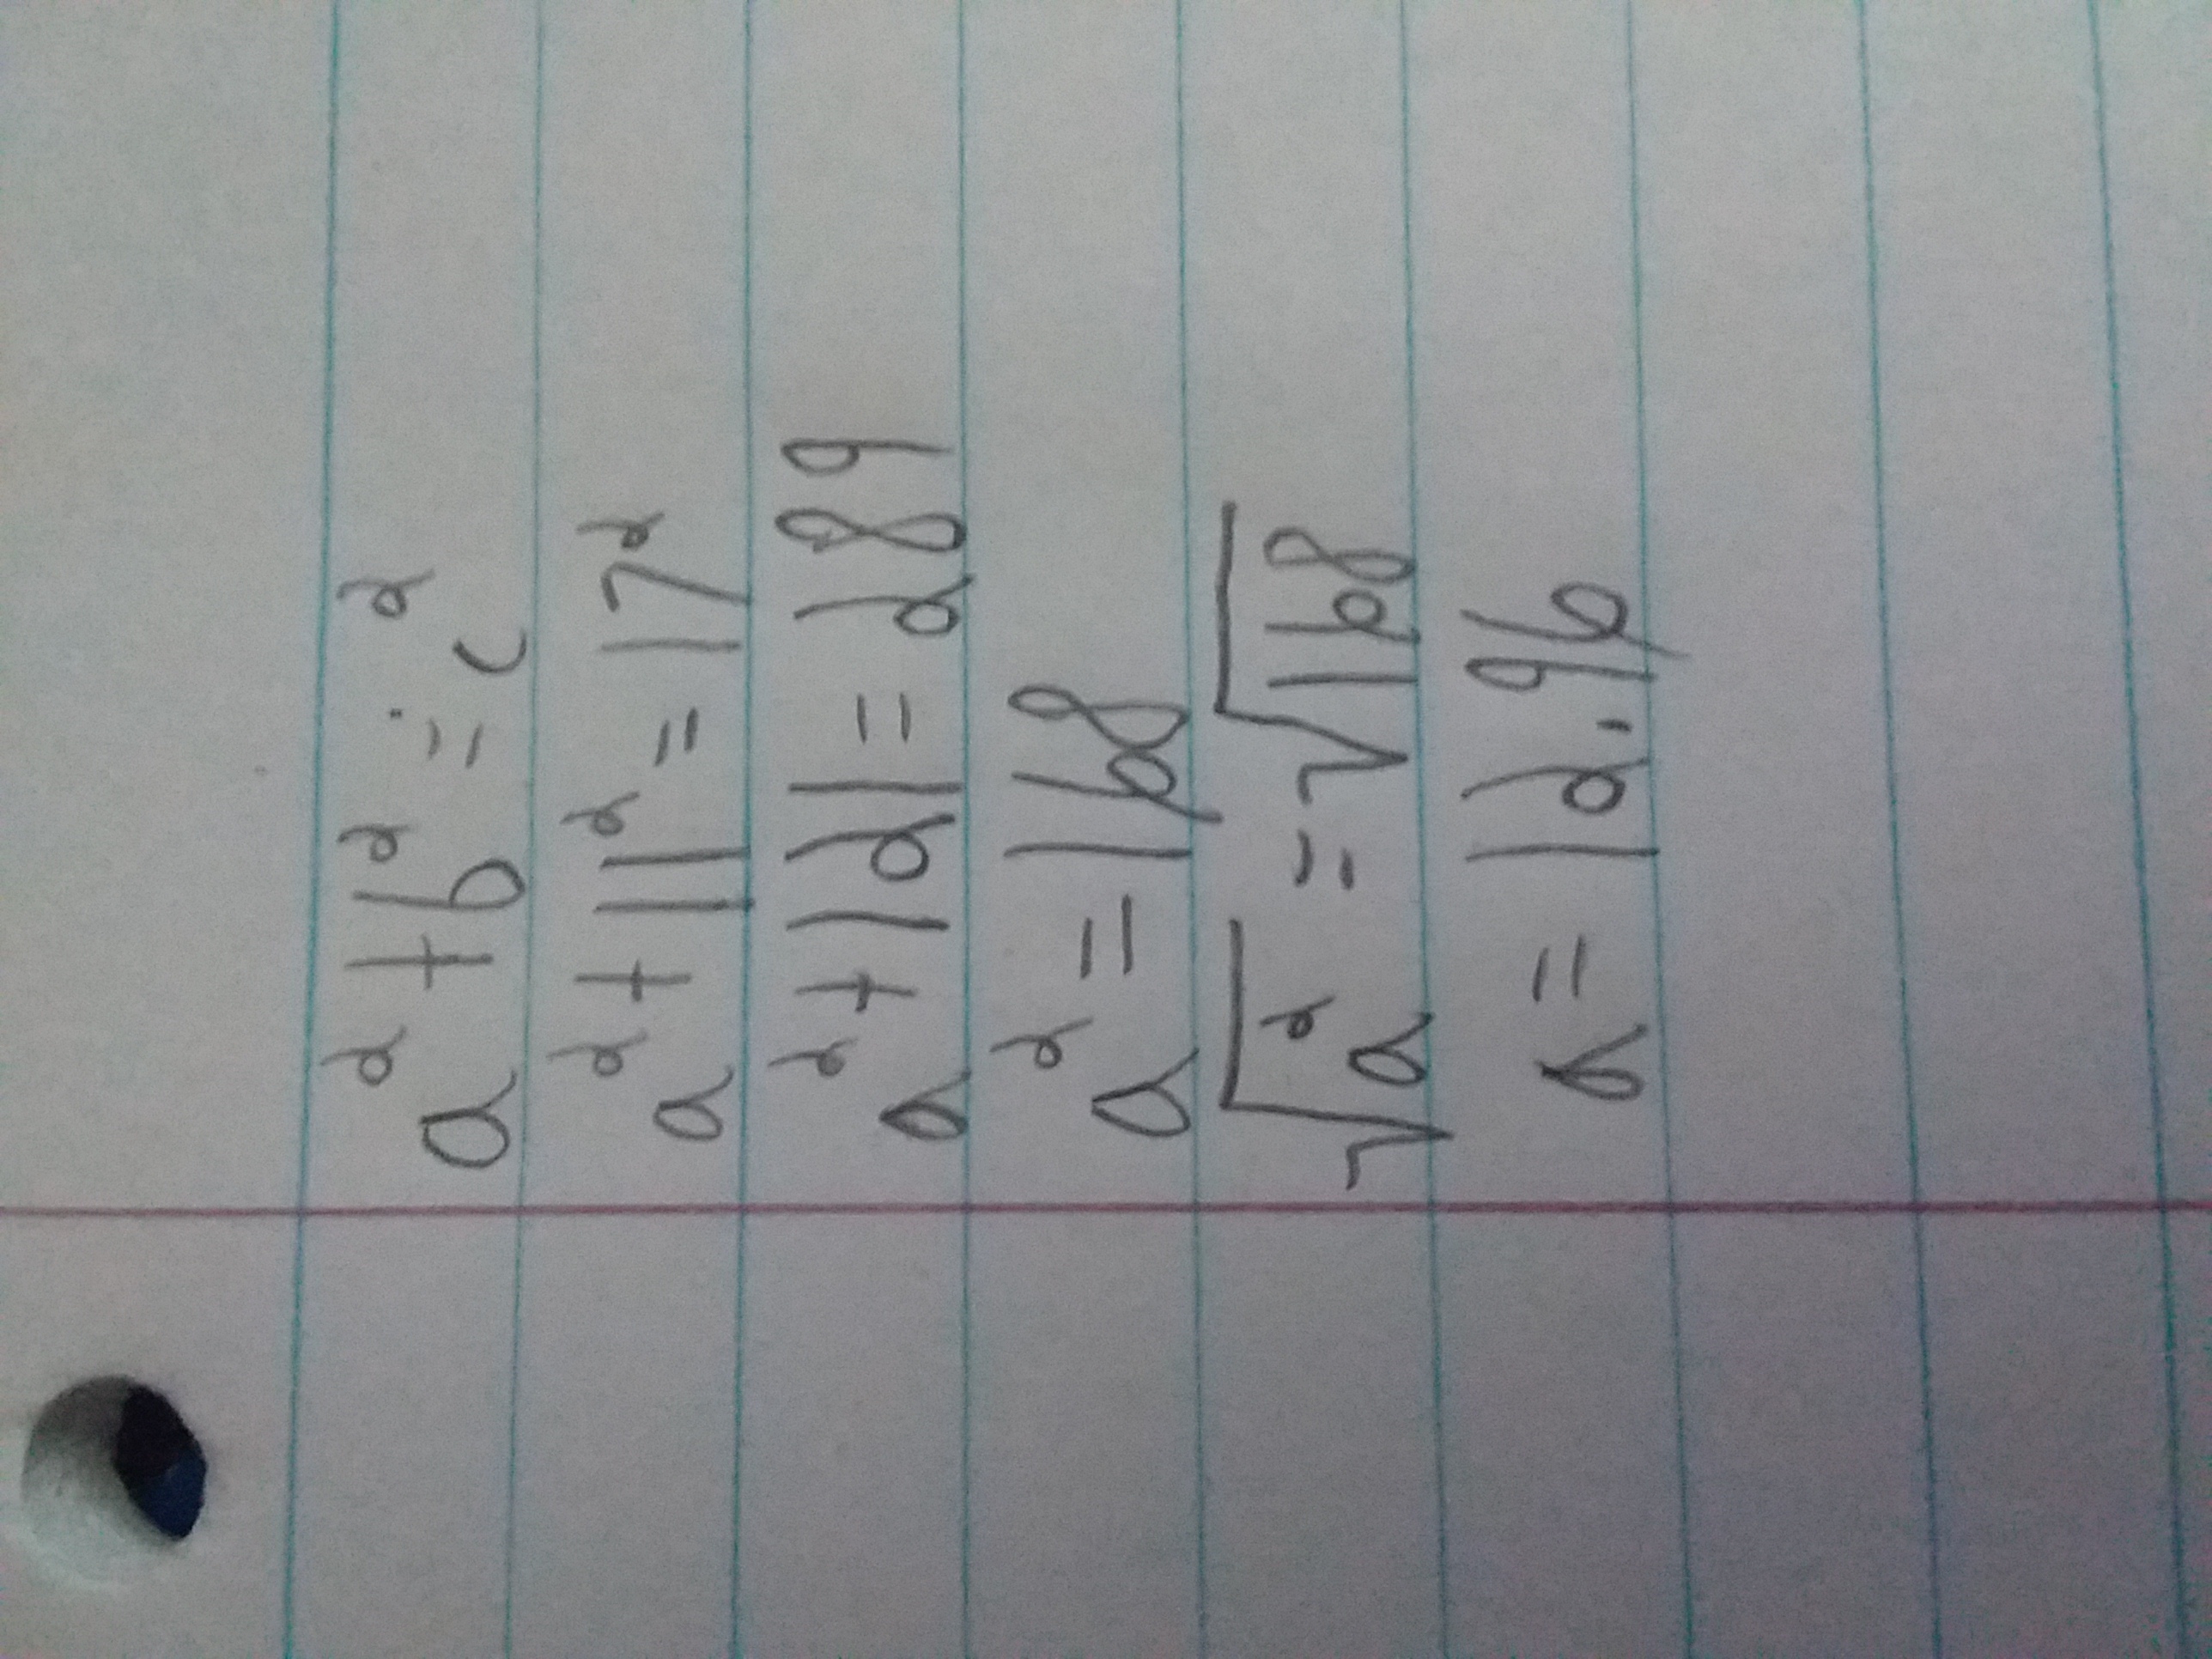 a² + b² = c²
a² + 11² = 17²
a² + 121 = 289
a² = 168
√a² = √168
a = 12.96